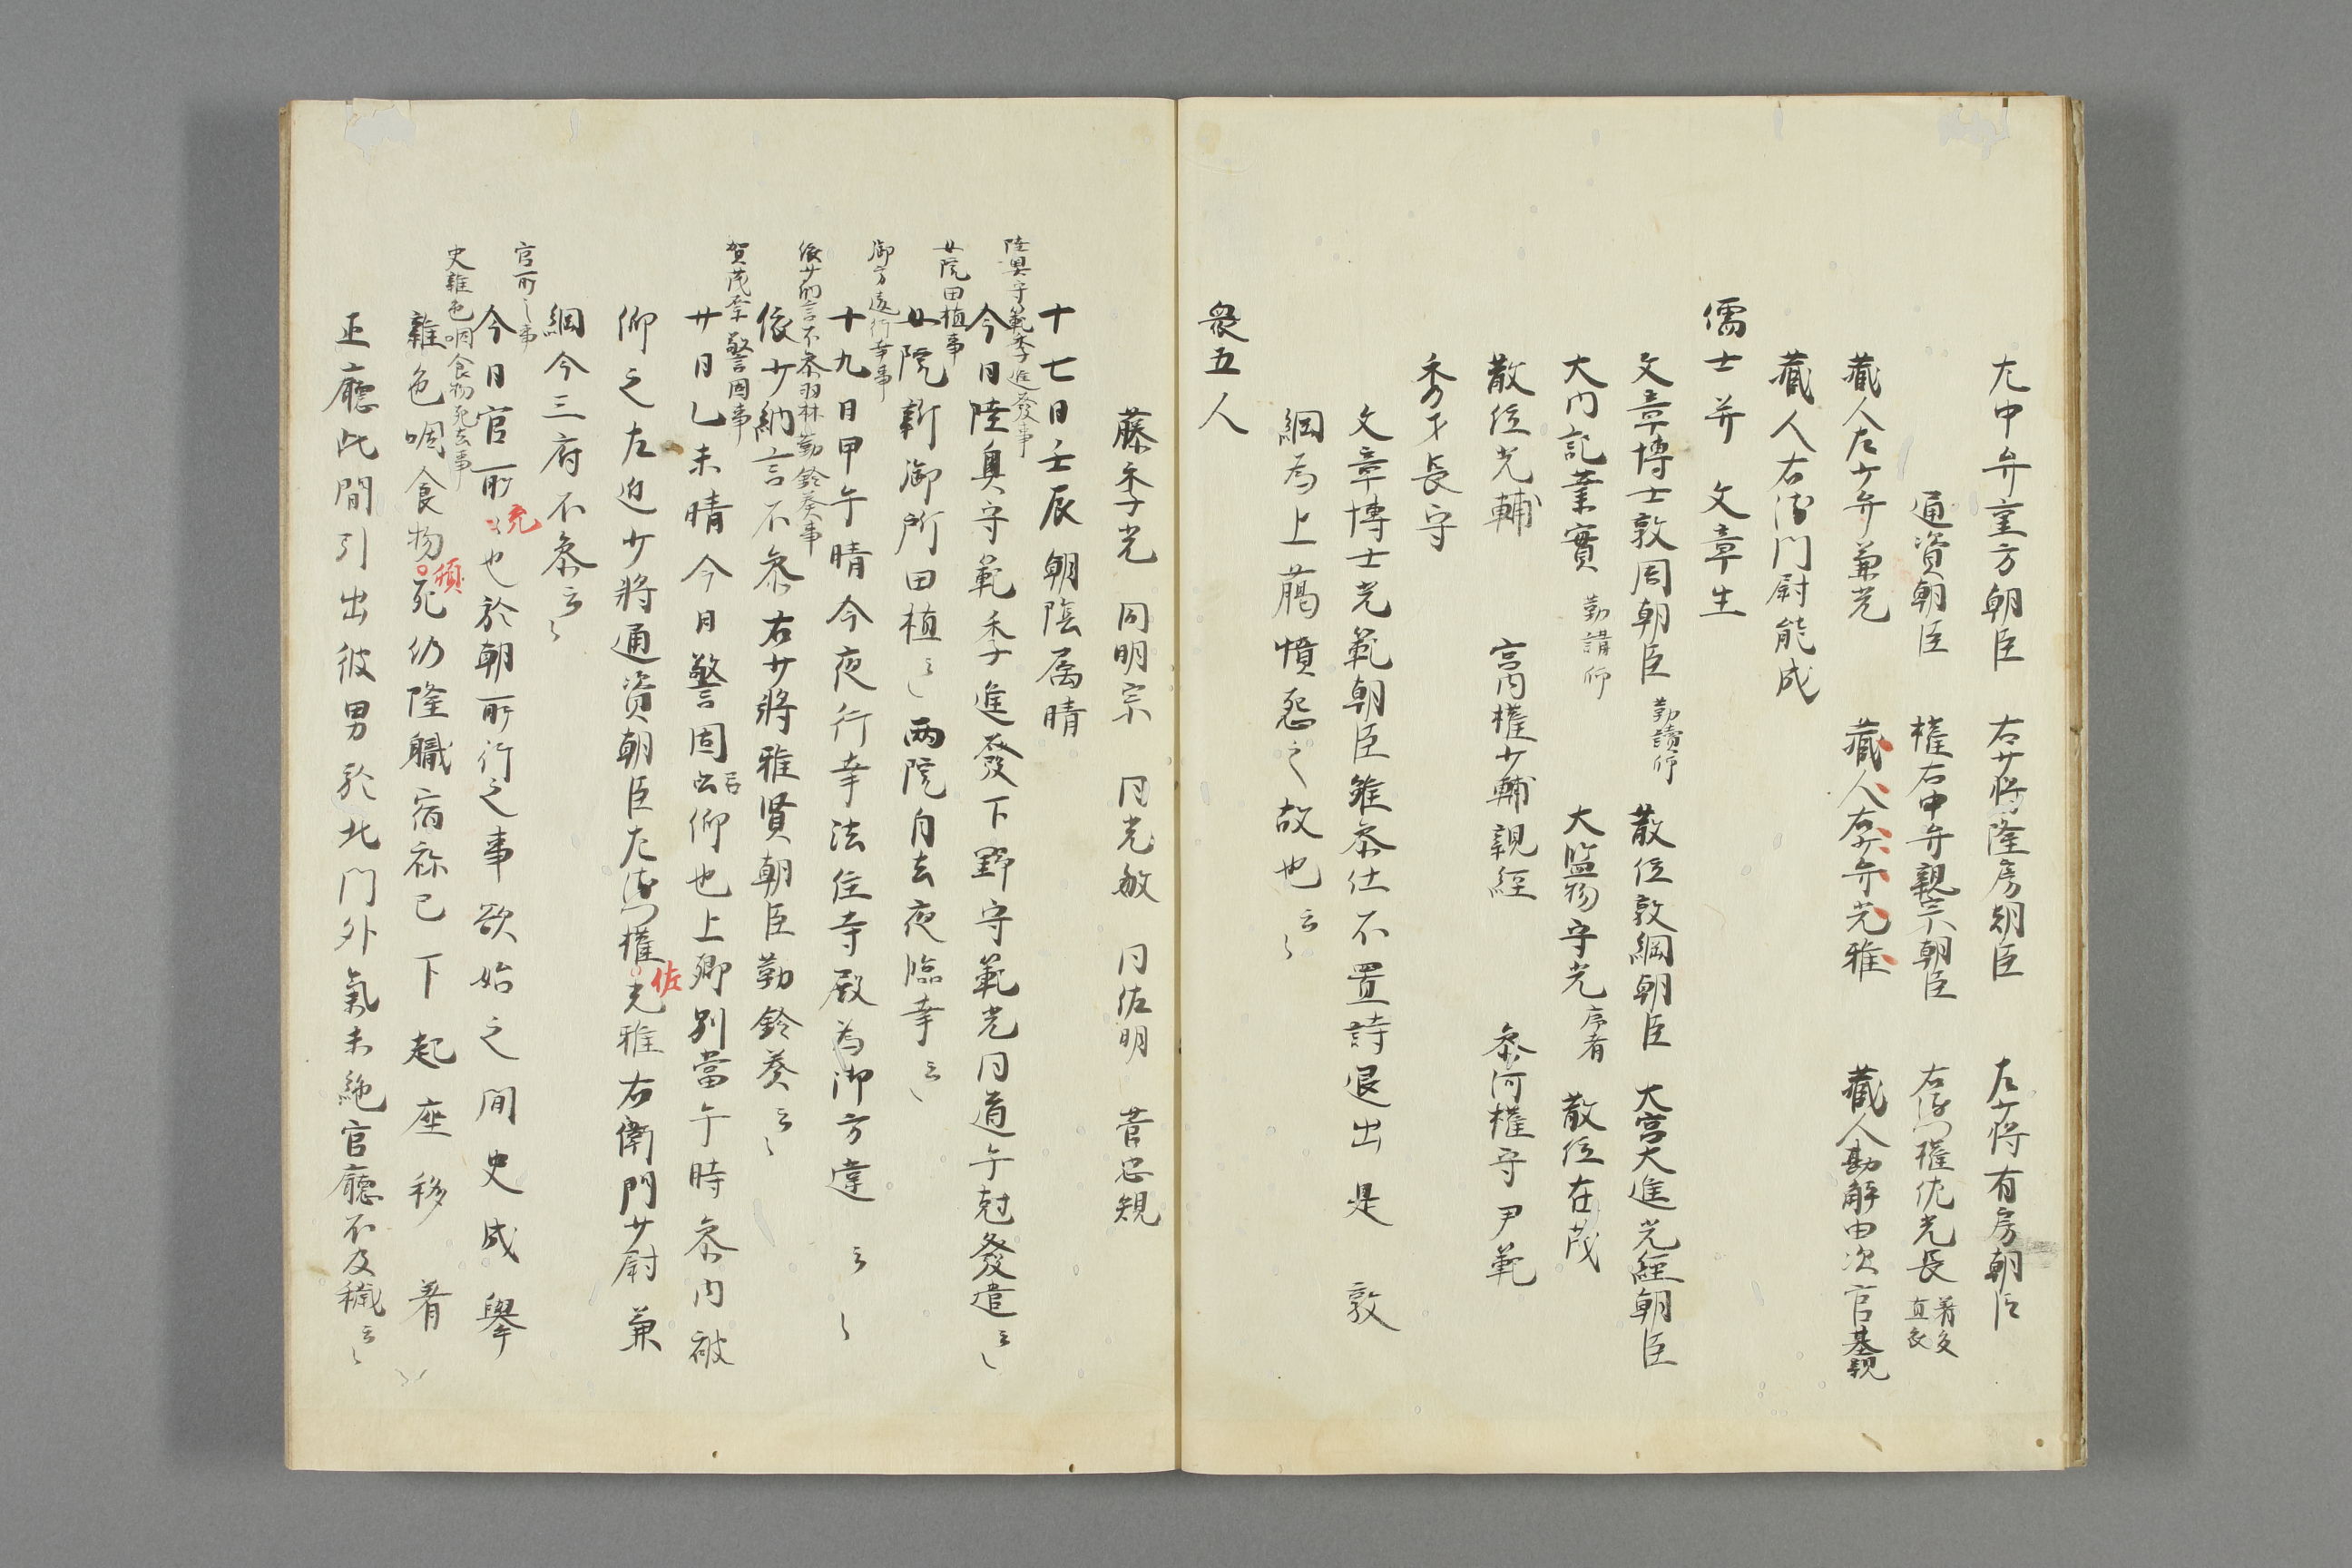 左中弁重方朝臣　右少将隆房朝臣　左少将有房朝臣
通資朝臣　権右中弁親宗朝臣　右衛門権佐光長
蔵人左少弁兼光　蔵人右少弁光雅　蔵人勘解由次官基親
蔵人右衛門尉能成
儒士并　文章生
文章博士敦周朝臣 勤讀師　散位敦綱朝臣　大宮大進光経朝臣
大内記業實 勤講師　大監物守光 序者　散位在茂
散位光輔　宮内権少輔親経　叅河権守尹範
秀才長守
文章博士光範朝臣雖叅仕不置詩退出是敦
綱為上﨟憤怨之故也云々
衆五人
藤季光　同明宗　同光敏　同佐明　菅忠規
十七日壬辰朝陰属晴
陸奥守範季進發事
今日陸奥守範季進發下野守範光同道午尅發遣云々
女院田植事
女院新御所田植云々両院自去夜臨幸云々
御方違行幸事
十九日甲午晴今夜行幸法住寺殿為御方違云々
依少納言不叅羽林勤鈴奏事
依少納言不叅右少將雅賢朝臣勤鈴奏云々
賀茂祭警固事
廿日乙未晴今日警固召仰也上卿別當午時叅内被
仰之左近少將通資朝臣左衛門権佐光雅右衛門少尉兼
綱今三府不叅云々
官所々事
今日官所々充也於朝所行之事欲始之間史成擧
史雜色咽食物死去事
雜色咽食物頓死仍隆職宿祢已下起座移着
正廳此間引出彼男於北門外氣未絶官廳不及穢云々